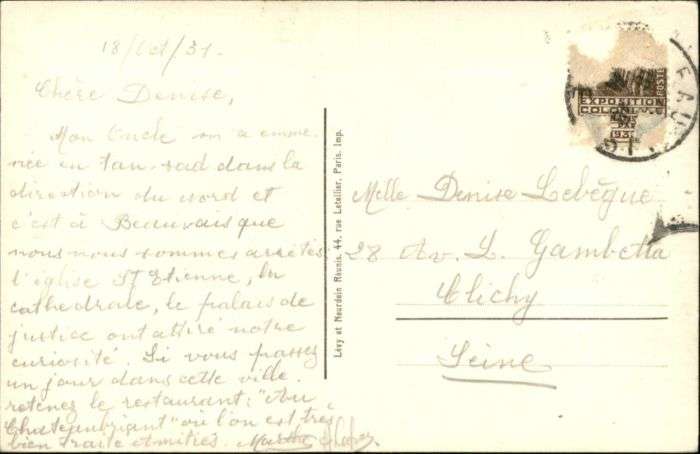 18/Oct/31.
Chère Denise,
Mon Oncle m'a emme-
née en tan-sad dans la
direction du nord et
c'est à Beauvais que
nous nous sommes arrêtés
l'église St Etienne, la
cathédrale, le palais de
justice ont attiré notre
curiosité. Si vous passez
un jour dans cette ville.
retenez le restaurant: "Au
Chateaubriant" où l'on est très
bien traité Amitiés.
Lévy et Neurdein Réunis, 44, rue Letellier, Paris. Imp.
POSTE
EXPOSITION
COLONIALE
PARIS
1931
Melle Denise Lebègue
28 Av. L. Gambetta
Clichy
Seine